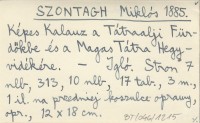 SZONTAGH Miklós 1885.
Képes Kalauz a Tátraalji Für-
dőkbe és a Magas Tátra Hegy-
vidékére. - Igló Stron 7
nlb, 313, 10 nlb, 17 tab., 3 m.,
1 il. na przedniej oprawy,
opr., 12 x 18 cm.